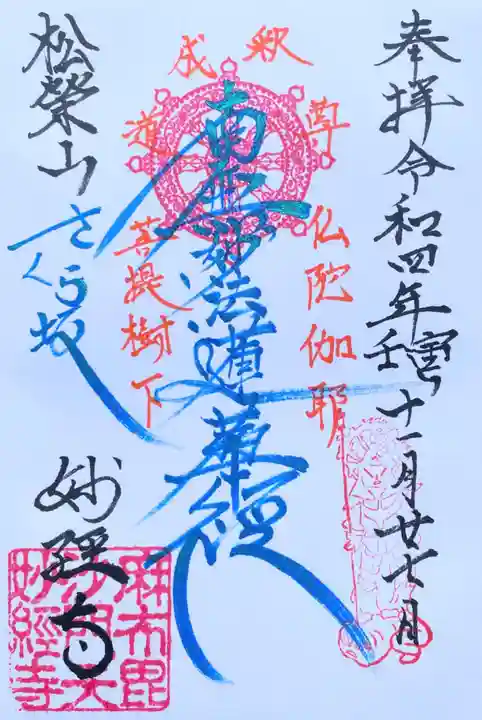 奉拝
令和四年壬寅
十一月廿七日
釈尊
成道
仏陀伽耶
菩提樹下
南無妙法蓮華経
松榮山
さくら坂
妙経寺
麻布毘
沙門天
妙經寺